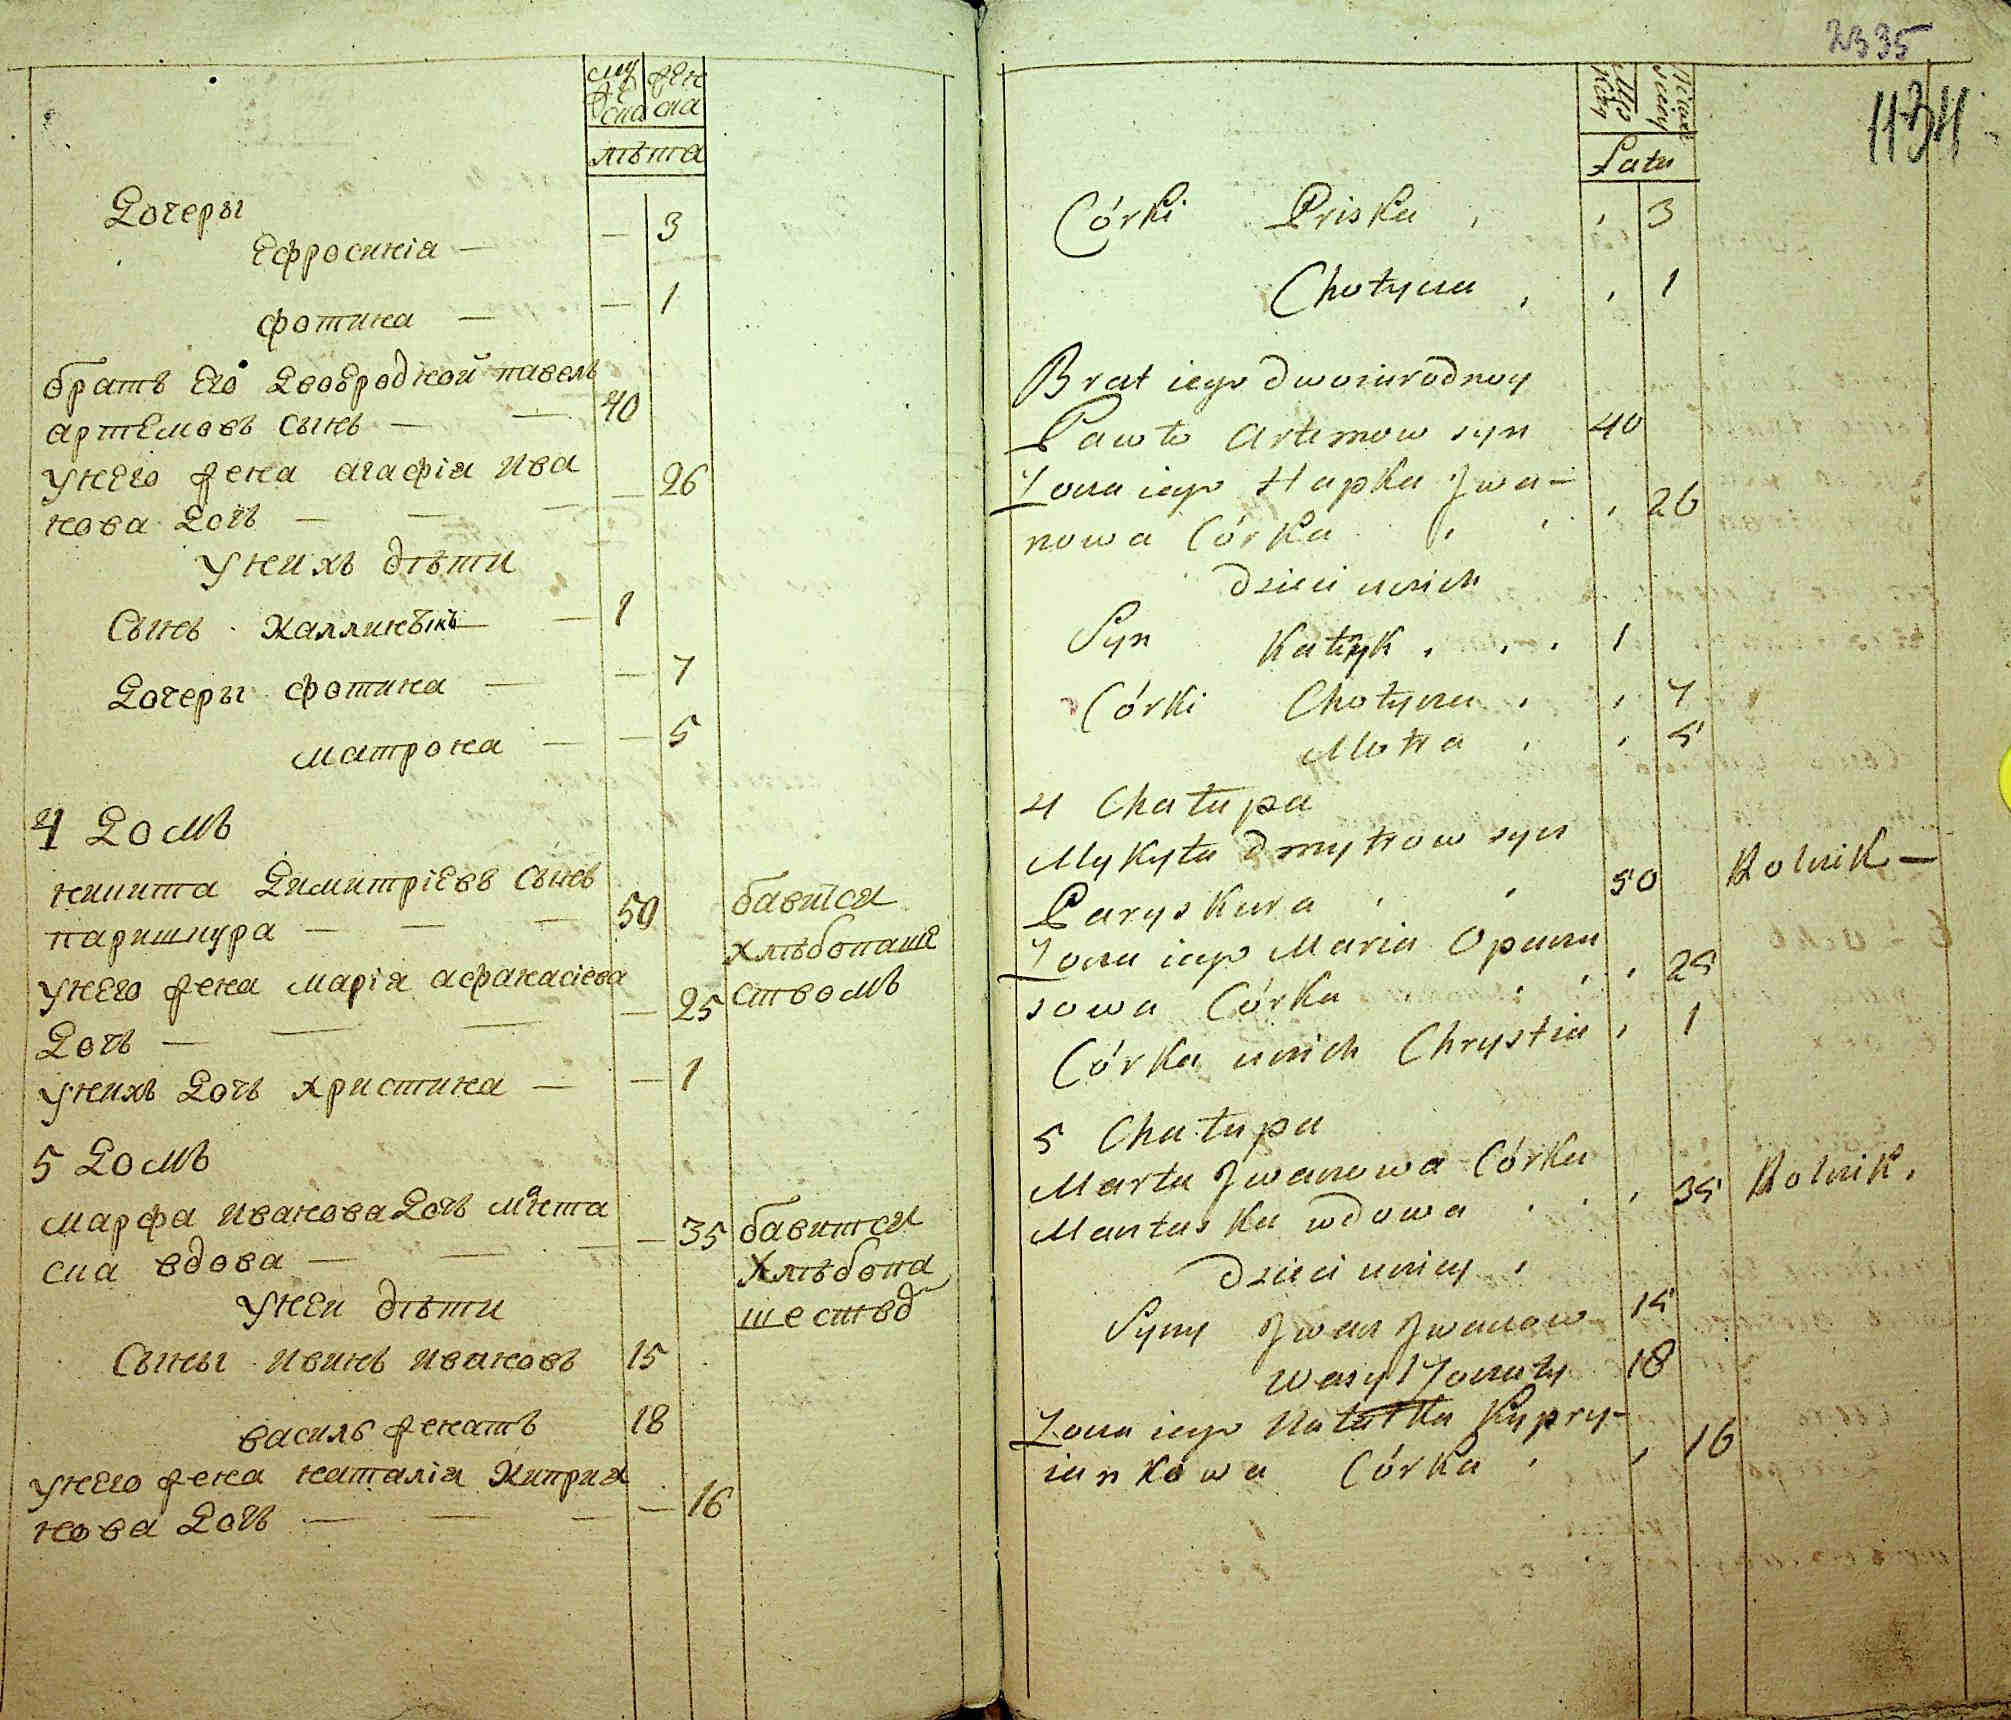 муже ска
жен ска
лѣта
Дочеры
Ефросинія — — 3
фотина — — 1
братъ Его Двоюродной павелъ
артемовъ сынъ — — 40
унего жена агафія ива
нова Дочь — — — — 26
унихъ дѣти
Сынъ Каллиникъ — — 1
Дочеры фотина — — 7
матрона — — 5
4 Домъ
никита Димитріевъ сынъ
паришкура — — — 50 бавится
хлѣбопаше
ством
унего жена марія афанасіева
Дочь — — — — 25
унихъ Дочь христина — — 1
5 Домъ
марфа иванова Дочь манта
ска вдова — — — — 35 бавится
хлѣбопа
шество
уней дѣти
Сыны ивань ивановъ 15
василь женатъ 18
унего жена наталія Киприя
нова Дочь — — — — 16
2335
1134
Męz kiey
Zenskiey
Lata
Córki Priska , , 3
Chotyna , , 1
Brat iego dwoiurodnoy
Pawło Artemow syn 40
Zona iego Hapka Jwa-
nowa Córka , , , 26
dzieci unich
Syn Kałnyk , , , 1
Córki Chotyna , , 7
Motra , , 5
4 Chałupa
Mykyta dmytrow syn
Paryskura , , 50 Rolnik —
Zona iego Maria Opana
sowa Córka , , , 25
Córka unich Chrystia , 1
5 Chałupa
Marta Jwanowa Córka
Mantaska wdowa , , , 35 Rolnik.
dzieci uniey ,
Syny Jwan Jwanow 15
Wasyl Zonaty 18
Zona iego Natałka Kypry-
iankowa Córka , , 16